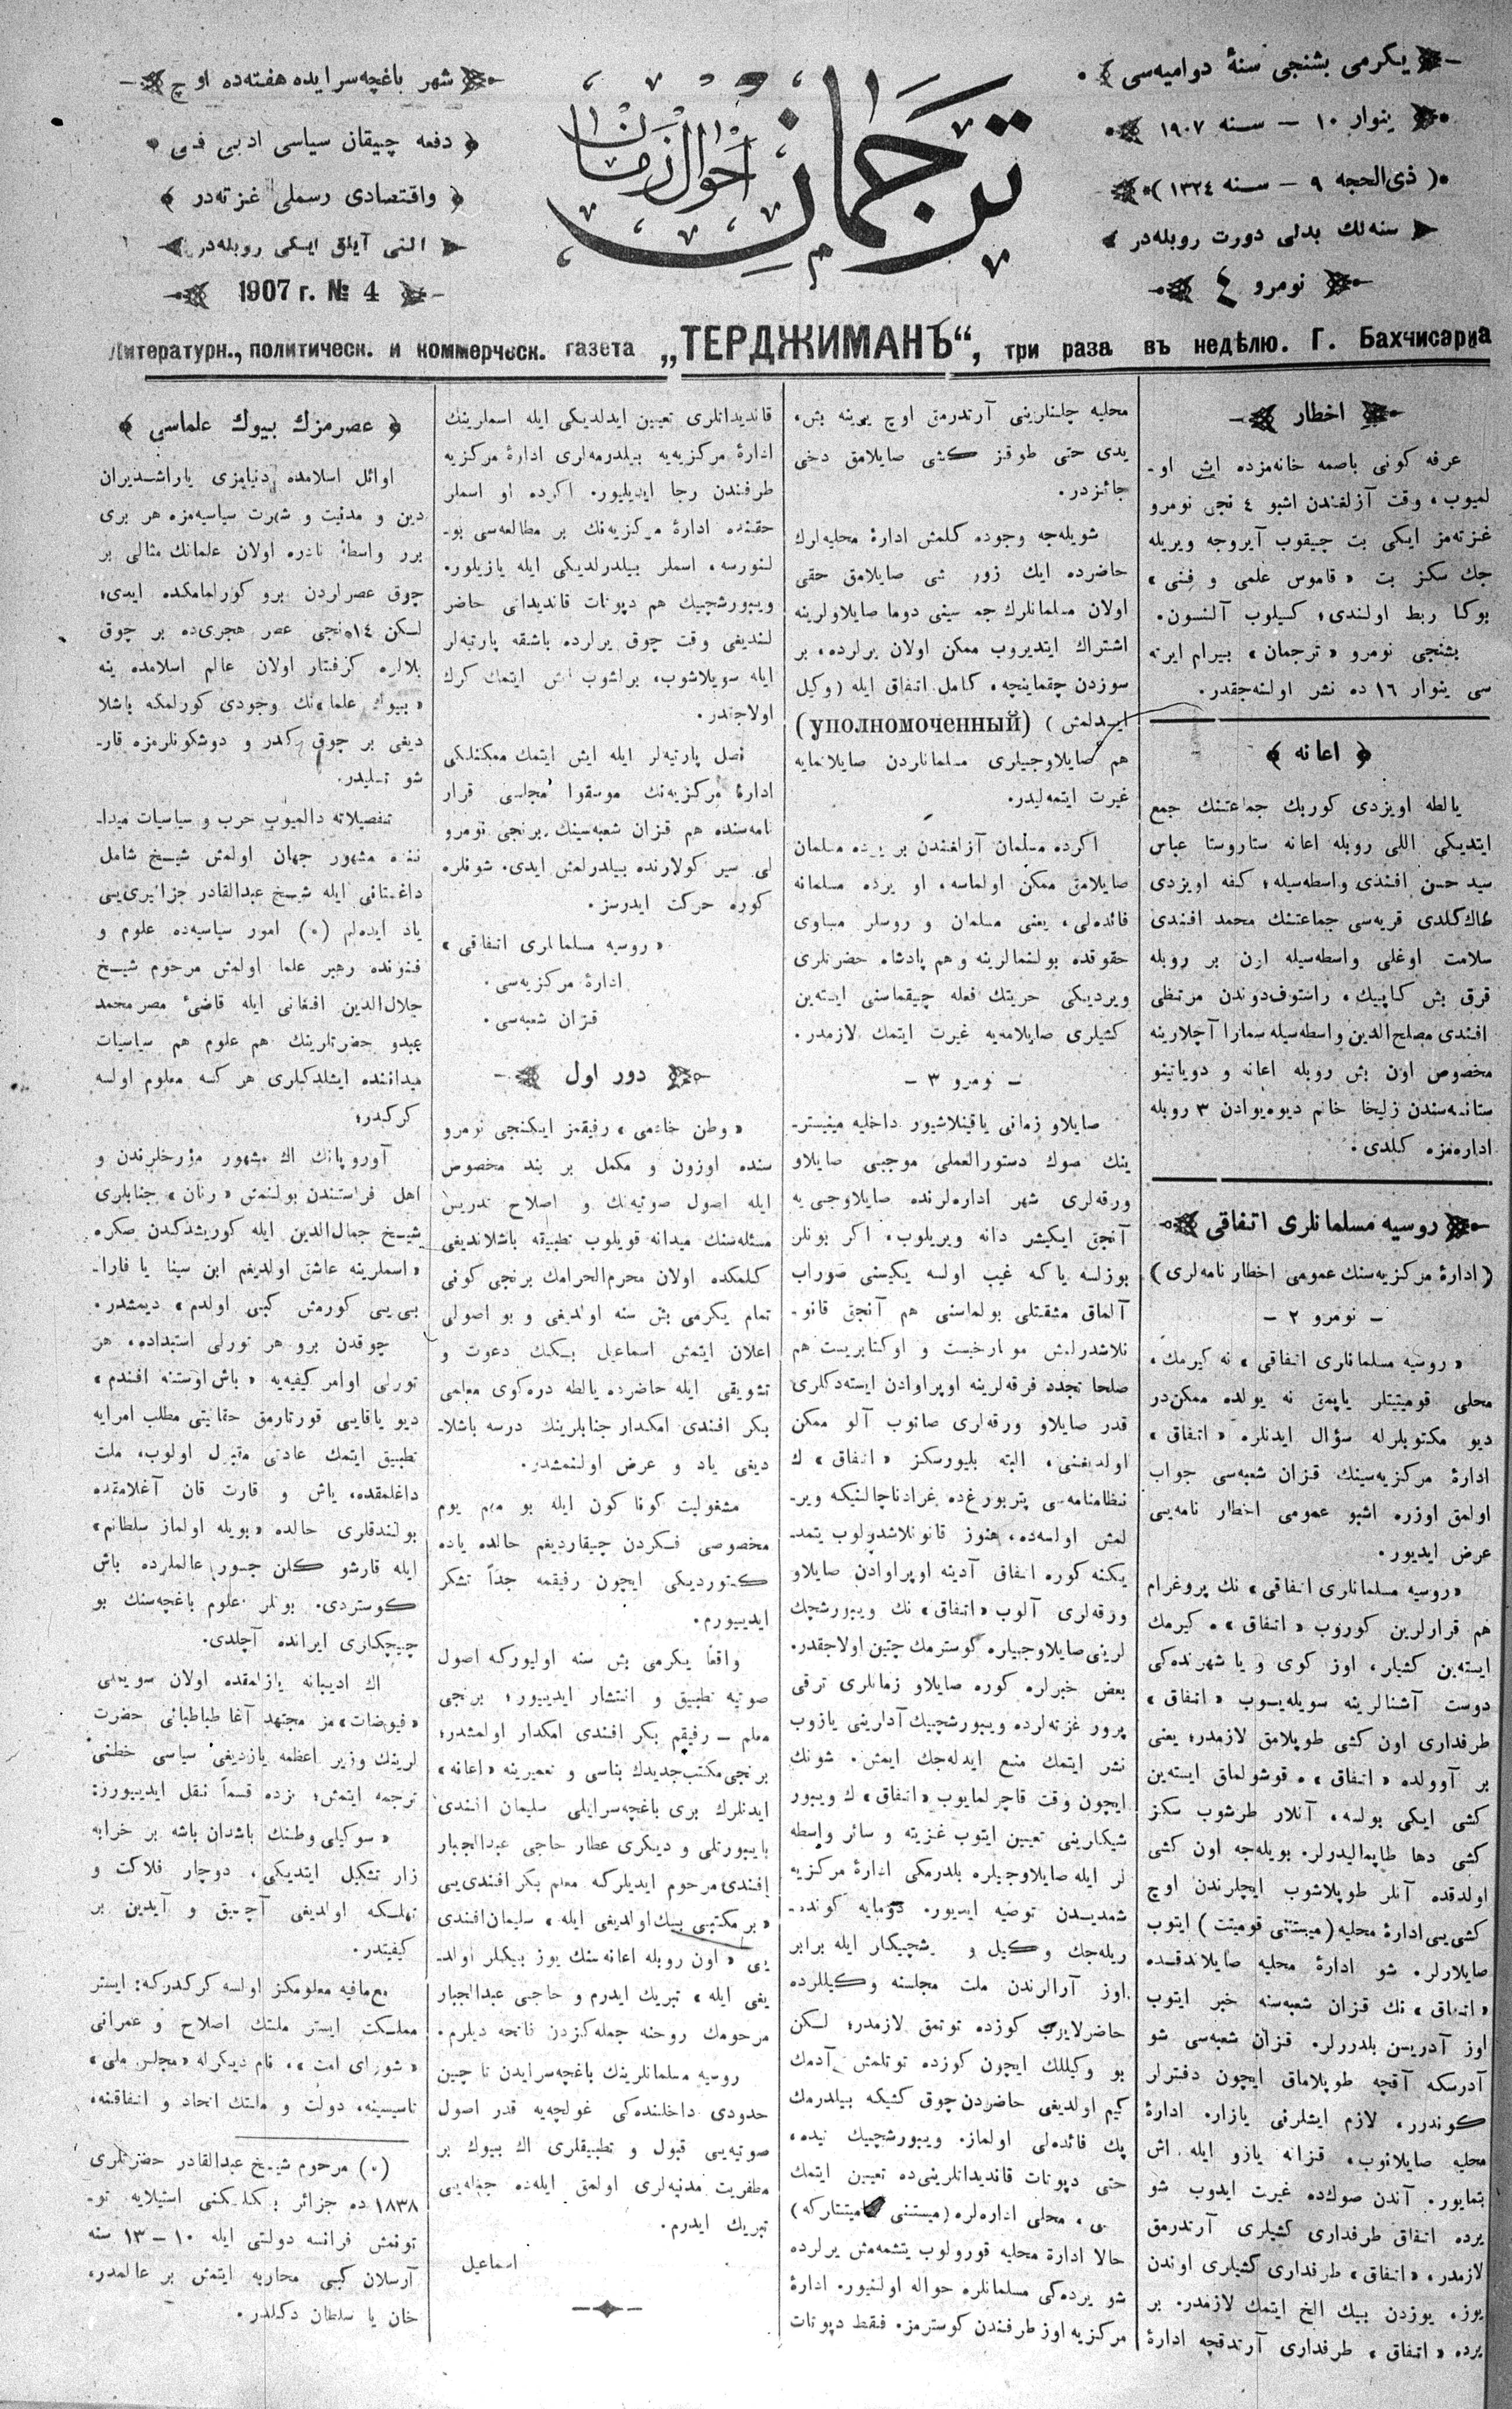 یکرمی بشنجی سنۀ دوامیه‌سی
ینوار ١٠ — سنه ١٩٠٧
(ذی‌الحجه ٩ — سنه ١٣٢٤)
سنه‌لك بدلی دورت روبله‌در
نومرو ٤
ترجمان
احوال زمان
شهر باغچه‌سرایده هفته‌ده اوچ
دفعه چیقان سیاسی ادبی فنی
واقتصادی رسملی غزته‌در
التی آیلق ایکی روبله‌در
1907 г. № 4
Литературн., политическ. и коммерческ. газета „ТЕРДЖИМАНЪ“, три раза въ недѣлю. Г. Бахчисарна
اخطار
عرفه کونی باصمه خانه‌مزده ایش او-
لمیوب، وقت آزلغندن اشبو ٤ نجی نومرو
غزته‌مز ایکی بت چیقوب آیروجه ویریله
جك سکز بت «قاموس علمی و فنی»
بوکا ربط اولندی؛ کسیلوب آلنسون.
بشنجی نومرو «ترجمان» بیرام ایرته
سی ینوار ١٦ ده نشر اولنه‌جقدر.
اعانه
یالطه اویزدی کوربك جماعتنك جمع
ایتدیکی اللی روبله اعانه ستاروستا عباس
سید حسن افندی واسطه‌سیله؛ کفه اویزدی
طاك‌کلدی قریه‌سی جماعتنك محمد افندی
سلامت اوغلی واسطه‌سیله اون بر روبله
قرق بش کاپیك، راستوف‌دوندن مرتظی
افندی مصلح‌الدین واسطه‌سیله سمارا آچلارینه
مخصوص اون بش روبله اعانه و دویانینو
ستانسه‌سندن زلیخا خانم دیوه‌یوادن ٣ روبله
اداره‌مزه کلدی.
روسیه مسلمانلری اتفاقی
(ادارۀ مرکزیه‌سنك عمومی اخطار نامه‌لری)
— نومرو ٢ —
«روسیه مسلمانلری اتفاقی» نه کیرمك،
محلی قومیتیتلر یاپمق نه یولده ممکن‌در
دیو مکتوبلرله سؤال ایدنلره «اتفاق»
ادارۀ مرکزیه‌سینك قزان شعبه‌سی جواب
اولمق اوزره اشبو عمومی اخطار نامه‌یی
عرض ایدیور.
«روسیه مسلمانلری اتفاقی» نك پروغرام
هم قرارلرین کوروب «اتفاق»ه کیرمك
ایسته‌ین کشیلر، اوز کوی و یا شهرنده‌کی
دوست آشنالرینه سویله‌یوب «اتفاق»
طرفداری اون کشی طوپلامق لازمدر؛ یعنی
بر آوولده «اتفاق»ه قوشولماق ایسته‌ین
کشی ایکی بولسه، آنلار طرشوب سکز
کشی دها طاپمالیدرلر. بویله‌جه اون کشی
اولدقده آنلر طوپلاشوب ایچلرندن اوچ
کشی‌یی ادارۀ محلیه (میستنی قومیتت) ایتوب
صایلارلر. شو ادارۀ محلیه صایلاندقده
«اتفاق» نك قزان شعبه‌سنه خبر ایتوب
اوز آدریسن بلدررلر. قزان شعبه‌سی شو
آدرسکه آقچه طوپلاماق ایچون دفترلر
کوندرر، لازم ایشلرنی یازار. ادارۀ
محلیه صایلانوب، قزانه یازو ایله اش
بتمایور. آندن صوك‌ده غیرت ایدوب شو
یرده اتفاق طرفداری کشیلری آرتدرمق
لازمدر، «اتفاق» طرفداری کشیلری اوندن
یوزه یوزدن بیك الخ ایتمك لازمدر. بر
یرده «اتفاق» طرفداری آرتدقچه ادارۀ
محلیه چلنلرینی آرتدرمق اوچ یرینه بش،
یدی حتی طوقز کشی صایلامق دخی
جائزدر.
شویله‌جه وجوده کلمش ادارۀ محلیه‌لرك
حاضرده ایك زور شی صایلامق حقی
اولان مسلمانلرك جمسینی دوما صایلاولرینه
اشتراك ایتدیروب ممکن اولان یرلرده، بر
سوزدن چقماینچه، کامل اتفاق ایله (وکیل
ایدلمش) (уполномоченный)
هم صایلاوجیلری مسلمانلردن صایلانمایه
غیرت ایتمه‌لیدر.
اکرده مسلمان آزلغندن بر یرده مسلمان
صایلامق ممکن اولماسه، او یرده مسلمانه
فائده‌لی، یعنی مسلمان و روسلر مساوی
حقوقده بولنمالرینه و هم پادشاه حضرتلری
ویردیکی حریتك فعله چیقماسنی ایسته‌ین
کشیلری صایلامه‌یه غیرت ایتمك لازمدر.
— نومرو ٣ —
صایلاو زمانی یاقینلاشیور داخلیه مینیستر-
ینك صوك دستورالعملی موجبنی صایلاو
ورقه‌لری شهر اداره‌لرنده صایلاوجی‌یه
آنجق ایکیشر دانه ویریلوب، اکر بونلر
بوزلسه یاکه غیب اولسه یکیسنی صوراب
آلماق مشقتلی بولماسنی هم آنجق قانو-
نلاشدرلمش مونارخیست و اوکتابریست هم
صلحا تجدد فرقه‌لرینه اوپراوادن ایسته‌دکلری
قدر صایلاو ورقه‌لری صانوب آلو ممکن
اولدیغنی، البته بلیورسکز «اتفاق» ك
نظامنامه‌سی پتربورغ‌ده غرادناچالنیکه ویر-
لمش اولسه‌ده، هنوز قانونلاشدرلوب یتمد-
یکنه کوره اتفاق آدینه اوپراوادن صایلاو
ورقه‌لری آلوب «اتفاق» نك ویبورشچك
لرینی صایلاوجیلره کوسترمك چتین اولاجقدر.
بعض خبرلره کوره صایلاو زمانلری ترقی
پرور غزته‌لرده ویبورشچیك آدارینی یازوب
نشر ایتمك منع ایدله‌جك ایمش. شونك
ایچون وقت قاچرلمایوب «اتفاق» ك ویبور
شیکارینی تعیین ایتوب غزیته و سائر واسطه
لر ایله صایلاوجیلره بلدرمکی ادارۀ مرکزیه
شمدیدن توصیه ایدیور. دومایه کونده-
ریله‌جك وکیل و شچیکار ایله برابر
اوز آرالرندن ملت مجلسنه وکیللرده
حاضرلایوب کوزده توتمق لازمدر؛ لسکن
بو وکیللك ایچون کوزده توتلمش آدمك
کیم اولدیغی حاضردن چوق کشیکه بیلدرمك
پك فائده‌لی اولماز. ویبورشچیك نیده،
حتی دپوتات قاندیداتلرینی‌ده تعیین ایتمك
محلی اداره‌لره
حالا ادارۀ محلیه قورولوب یتشمه‌مش یرلرده
شو یرده‌کی مسلمانلره حواله اولنیور. ادارۀ
مرکزیه اوز طرفندن کوسترمز. فقط دپوتات
قاندیداتلری تعیین ایدلدیکی ایله اسملرینك
ادارۀ مرکزیه‌یه بیلدرمه‌لری ادارۀ مرکزیه
طرفندن رجا ایدیلیور. اکرده او اسملر
حقنده ادارۀ مرکزیه‌نك بر مطالعه‌سی بو-
لنورسه، اسملر بیلدرلدیکی ایله یازیلور.
ویبورشچیك هم دپوتات قاندیداتی حاضر
لندیغی وقت چوق یرلرده باشقه پارتیه‌لر
ایله سویلاشوب، براشوب اش ایتمك کرك
اولاجقدر.
نصل پارتیه‌لر ایله ایش ایتمك ممکنلکی
ادارۀ مرکزیه‌نك موسقوا مجلسی قرار
نامه‌سنده هم قزان شعبه‌سینك برنجی نومرو
لی سیرکولارنده بیلدرلمش ایدی. شونلره
کوره حرکت ایدرسز.
«روسیه مسلمانلری اتفاقی»
ادارۀ مرکزیه‌سی.
قزان شعبه‌سی.
دور اول
«وطن خادمی» رفیقمز ایکنجی نومرو
سنده اوزون و مکمل بر بند مخصوص
ایله اصول صوتیه‌نك و اصلاح تدریس
مسئله‌سنك میدانه قویلوب تطبیقه باشلاندیغی
کلمکده اولان محرم‌الحرامك برنجی کونی
تمام یکرمی بش سنه اولدیغی و بو اصولی
اعلان ایتمش اسماعیل بیکك دعوت و
تشویقی ایله حاضرده یالطه دره‌کوی معلمی
بکر افندی امکدار جنابلرینك درسه باشلا-
دیغی یاد و عرض اولنمشدر.
مشغولیت کوناکون ایله بو مهم یوم
مخصوصی فکردن چیقاردیغم حالده یاده
کتوردیکی ایچون رفیقمه جداً تشکر
ایدییورم.
واقعا یکرمی بش سنه اولیورکه اصول
صوتیه تطبیق و انتشار ایدییور؛ برنجی
معلم — رفیقم بکر افندی امکدار اولمشدر؛
برنجی مکتب جدیدك بناسی و تعمیرینه «اعانه»
ایدنلرك بری باغچه‌سرایلی سلیمان افندی
بایبورتلی و دیکری عطار حاجی عبدالجبار
افندی مرحوم ایدیلرکه معلم بکر افندی‌یی
«بر مکتبی بیك اولدیغی ایله» سلیمان افندی
یی «اون روبله اعانه‌سنك یوز بیکلر اولد-
یغی ایله» تبریك ایدرم و حاجی عبدالجبار
مرحومك روحنه جمله‌کزدن فاتحه دیلرم.
روسیه مسلمانلرینك باغچه‌سرایدن تا چین
حدودی داخلنده‌کی غولجه‌یه قدر اصول
صوتیه‌یی قبول و تطبیقلری اك بیوك بر
مظفریت مدنیه‌لری اولمق ایله‌ده جمله‌یی
تبریك ایدرم.
اسماعیل
عصرمزك بیوك علماسی
اوائل اسلامده دنیامزی یاراشدیران
دین و مدنیت و شهرت سیاسیه‌مزه هر بری
برر واسطۀ نادره اولان علمانك مثالی بر
چوق عصرلردن برو کورلمامکده ایدی؛
لسکن ١٤نجی عصر هجری‌ده بر چوق
بلالره کرفتار اولان عالم اسلامده ینه
«بیوك علما»نك وجودی کورلمکه باشلا
دیغی بر چوق کدر و دوشکونلرمزه قار-
شو تسلیدر.
تفصیلاته دالمیوب حرب و سیاسیات میدا-
ننده مشهور جهان اولمش شیخ شامل
داغستانی ایله شیخ عبدالقادر جزائیری‌یی
یاد ایده‌لم (٠) امور سیاسیه‌ده علوم و
فنونده رهبر علما اولمش مرحوم شیخ
جلال‌الدین افغانی ایله قاضیٔ مصر محمد
عبدو حضرتلرینك هم علوم هم سیاسیات
میداننده ایشلدکلری هر کسه معلوم اولسه
کرکدر؛
آوروپانك اك مشهور مؤرخلرندن و
اهل فراستندن بولنمش «رنان» جنابلری
شیخ جمال‌الدین ایله کوریشدکدن صکره
«اسملرینه عاشق اولدیغم ابن سینا یا فارا-
بی‌یی کورمش کبی اولدم» دیمشدر.
چوقدن برو هر تورلی استبداده، هر
تورلی اوامر کیفیه‌یه «باش اوستنه افندم»
دیو یاقایی قورتارمق حقانیتی مطلب امرایه
تطبیق ایتمك عادتی مقبول اولوب، ملت
داغلمقده، یاش و قارت قان آغلامقده
بولندقلری حالده «بویله اولماز سلطانم»
ایله قارشو کلن جسور عالملرده باش
کوستردی. بونلر علوم باغچه‌سنك بو
چیچکلری ایرانده آچلدی.
اك ادیبانه یازلمقده اولان سویملی
«فیوضات»مز مجتهد آغا طباطبائی حضرت
لرینك وزیر اعظمه یازدیغی سیاسی خطنی
ترجمه ایتمش؛ بزده قسماً نقل ایدییورز:
«سوکیلی وطنك باشدان باشه بر خرابه
زار تشکیل ایتدیکی، دوچار فلاکت و
تهلکه اولدیغی آچیق و آیدین بر
کیفیتدر.
مع‌مافیه معلومکز اولسه کرکدرکه: ایستر
مملکت ایستر ملتك اصلاح و عمرانی
«شورای امت»، نام دیکرله «مجلس ملی»
تاسیسینه، دولت و ملتك اتحاد و اتفاقنه،
(٠) مرحوم شیخ عبدالقادر حضرتلری
١٨٣٨ ده جزائر استیلایه تو-
توتمش فرانسه دولتی ایله ١٠—١٣ سنه
آرسلان کبی محاربه ایتمش بر عالمدر،
خان یا سلطان دکلدر.